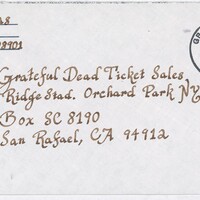 08901
Grateful Dead Ticket Sales
Ridge Stad. Orchard Park NY
Box SC 8190
San Rafael, CA 94912